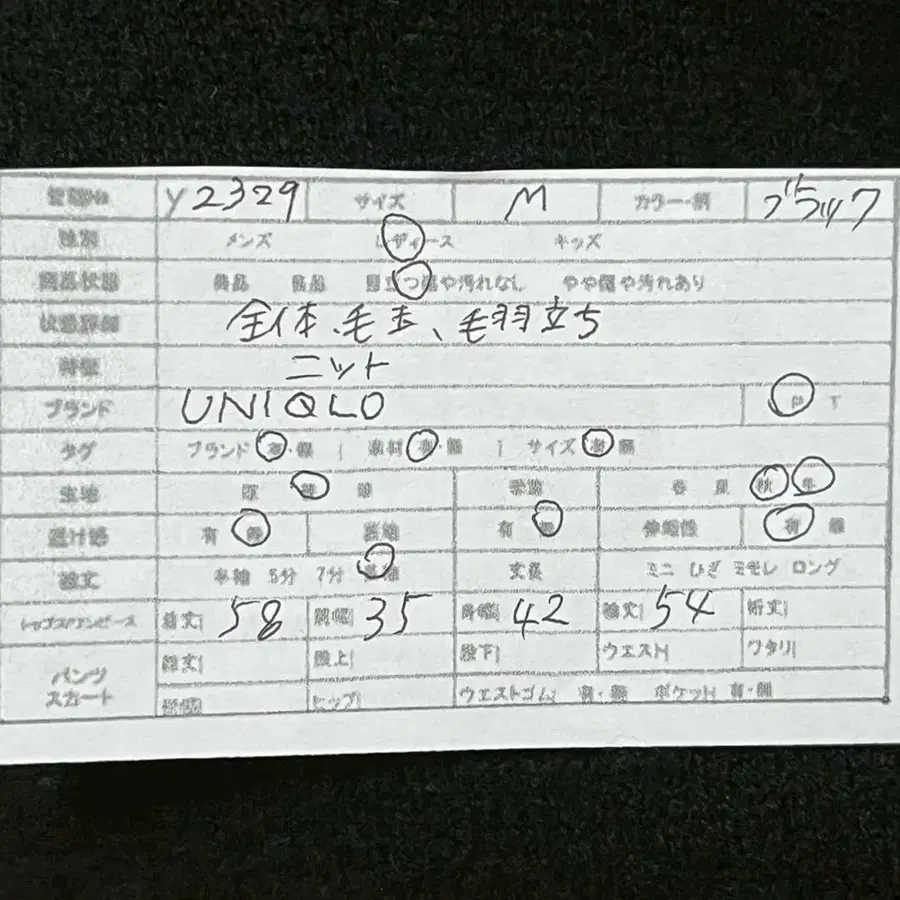 管理No Y2329 サイズ M カラー・柄 ブラック
性別 メンズ レディース キッズ
商品状態 美品 良品 目立つ傷や汚れなし やや傷や汚れあり
状態詳細 全体、毛玉、毛羽立ち
ニット
ブランド UNIQLO P T
タグ ブランド 有・無 | 素材 有・無 | サイズ 有・無
生地 厚 薄 春 夏 秋 冬
透け感 有 無 裏地 有 無 伸縮性 有 無
袖丈 半袖 5分 7分 長袖 丈長 ミニ ひざ ミモレ ロング
トップス/ワンピース 着丈 58 肩幅 35 身幅 42 袖丈 54 裄丈
パンツ スカート 総丈 股上 股下 ウエスト ワタリ
裾幅 ヒップ ウエストゴム 有・無 ポケット 有・無